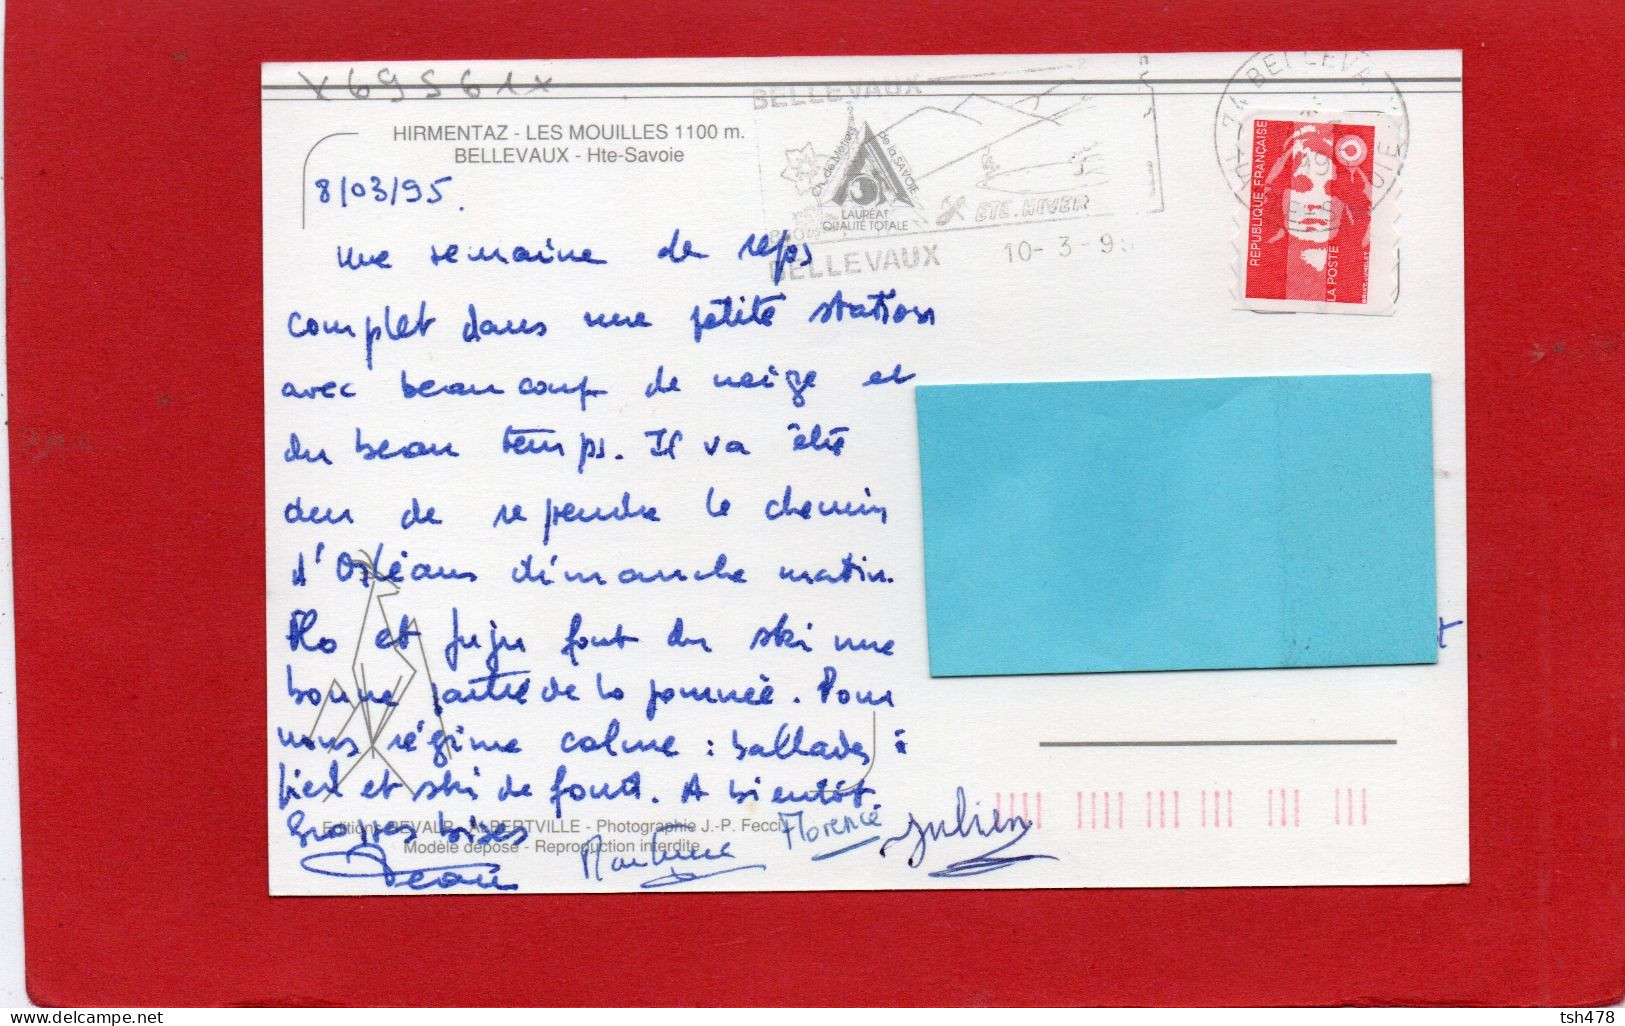 x69561x
HIRMENTAZ - LES MOUILLES 1100 m.
BELLEVAUX - Hte-Savoie
8/03/95.
BELLEVAUX
Ch. de Métiers de la SAVOIE
LAURÉAT
QUALITÉ TOTALE
ETE. HIVER
BELLEVAUX 10-3-95
74 BELLEVAUX
HTE SAVOIE
REPUBLIQUE FRANÇAISE
LA POSTE
Une semaine de repos
complet dans une petite station
avec beaucoup de neige et
du beau temps. Il va être
dur de rependre le chemin
d'Orléans dimanche matin.
Flo et Juju font du ski une
bonne partie de la journée. Pour
nous régime calme : ballades à
pied et ski de fond. A bientôt.
Grosses bises
Editions BEVALP - ALBERTVILLE - Photographie J.-P. Fecci
Modèle déposé - Reproduction interdite
Martine Florence Julien
tsh478